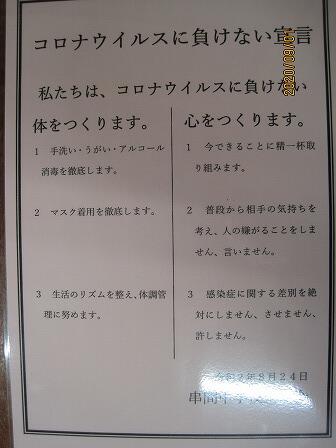 コロナウイルスに負けない宣言
私たちは、コロナウイルスに負けない
体をつくります。
1 手洗い・うがい・アルコール
消毒を徹底します。
2 マスク着用を徹底します。
3 生活のリズムを整え、体調管
理に努めます。
心をつくります。
1 今できることに精一杯取
り組みます。
2 普段から相手の気持ちを
考え、人の嫌がることをしま
せん、言いません。
3 感染症に関する差別を絶
対にしません、させません、
許しません。
令和2年8月24日
串間中学校
2020/09/01